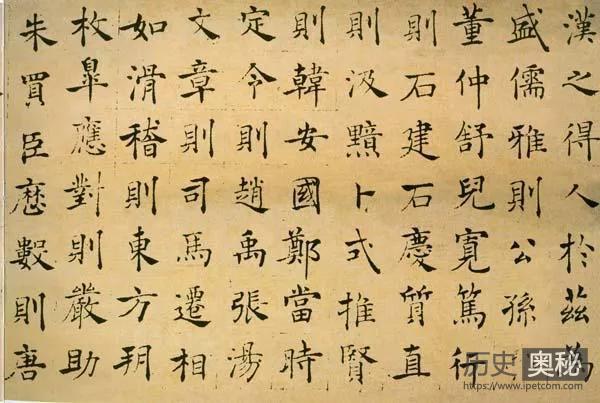 漢之得人於茲為
盛儒雅則公孫
董仲舒兒寬篤行
則石建石慶質直
則汲黯卜式推賢
則韓安國鄭當時
定令則趙禹張湯
文章則司馬遷相
如滑稽則東方朔
枚皐應對則嚴助
朱買臣歷數則唐
历史奥秘
https://www.ipetcom.com